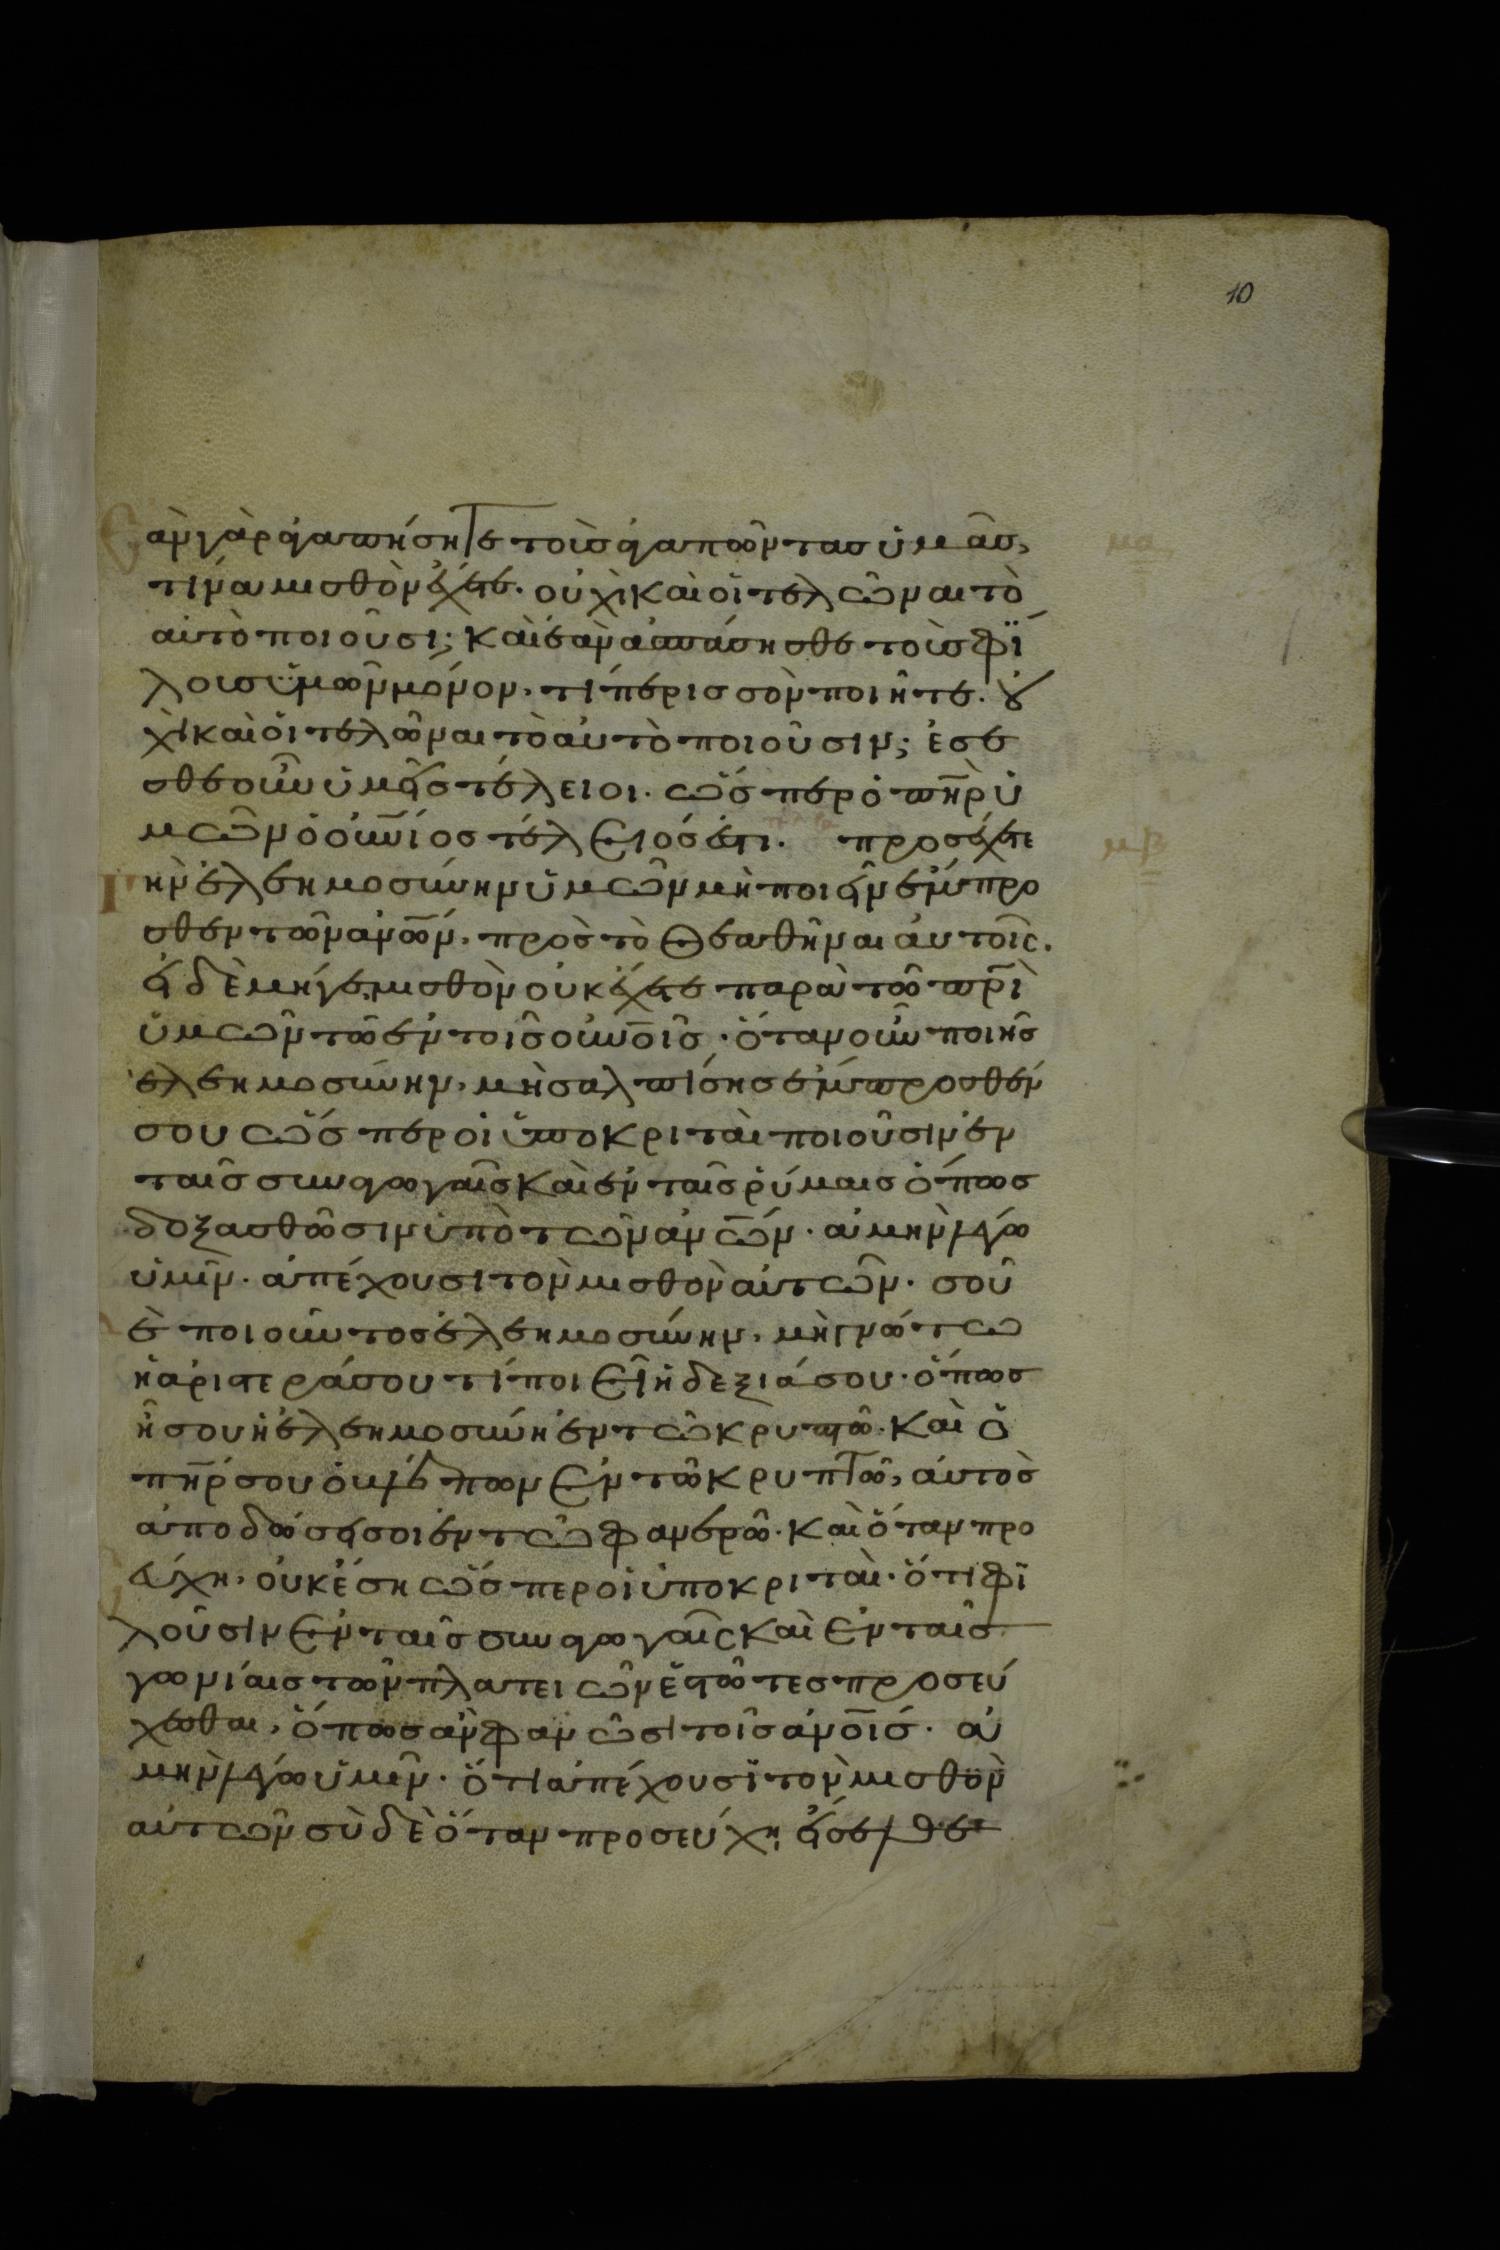 10
Ἐὰν γὰρ ἀγαπήσητε τοὺς ἀγαπῶντας ὑμᾶς,
τίνα μισθὸν ἔχετε. οὐχὶ καὶ οἱ τελῶναι τὸ
αὐτὸ ποιοῦσι; καὶ ἐὰν ἀσπάσησθε τοὺς φί
λους ὑμῶν μόνον, τί περισσὸν ποιῆτε. οὐ
χὶ καὶ οἱ τελῶναι τὸ αὐτὸ ποιοῦσιν; ἔσε
σθε οὖν ὑμεῖς τέλειοι. ὥσπερ ὁ πηρ ὑ
μῶν ὁ οὐνιος τέλειός ἐστι. προσέχετε
μα
μβ
Τὴν ἐλεημοσύνην ὑμῶν μὴ ποιεῖν ἔμπρο
σθεν τῶν ἀνων, πρὸς τὸ θεαθῆναι αὐτοῖς.
εἰ δὲ μήγε, μισθὸν οὐκ ἔχετε παρὰ τῶ πρι
ὑμῶν τῶ ἐν τοῖς οὐνοις. ὅταν οὖν ποιῆς
ἐλεημοσύνην, μὴ σαλπίσης ἔμπροσθέν
σου ὥσπερ οἱ ὑποκριταὶ ποιοῦσιν ἐν
ταῖς συναγωγαῖς καὶ ἐν ταῖς ῥύμαις ὅπως
δοξασθῶσιν ὑπὸ τῶν ἀνων. ἀμὴν λέγω
ὑμῖν. ἀπέχουσι τὸν μισθὸν αὐτῶν. σοῦ
δὲ ποιοῦντος ἐλεημοσύνην, μὴ γνώτω
ἡ ἀριστερά σου τί ποιεῖ ἡ δεξιά σου. ὅπως
ἦ σου ἡ ἐλεημοσύνη ἐν τῶ κρυπτῶ. καὶ ὁ
πηρ σου ὁ βλέπων ἐν τῶ κρυπτῶ, αὐτὸς
ἀποδώσει σοι ἐν τῶ φανερῶ. καὶ ὅταν προ
εύχη, οὐκ ἔση ὥσπερ οἱ ὑποκριταὶ. ὅτι φι
λοῦσιν ἐν ταῖς συναγωγαῖς καὶ ἐν ταῖς
γωνίαις τῶν πλατειῶν ἑστῶτες προσεύ
χεσθαι, ὅπως ἂν φανῶσι τοῖς ἀνοις. ἀ
μὴν λέγω ὑμῖν. ὅτι ἀπέχουσι τὸν μισθὸν
αὐτῶν σὺ δὲ ὅταν προσεύχη, εἴσελθε